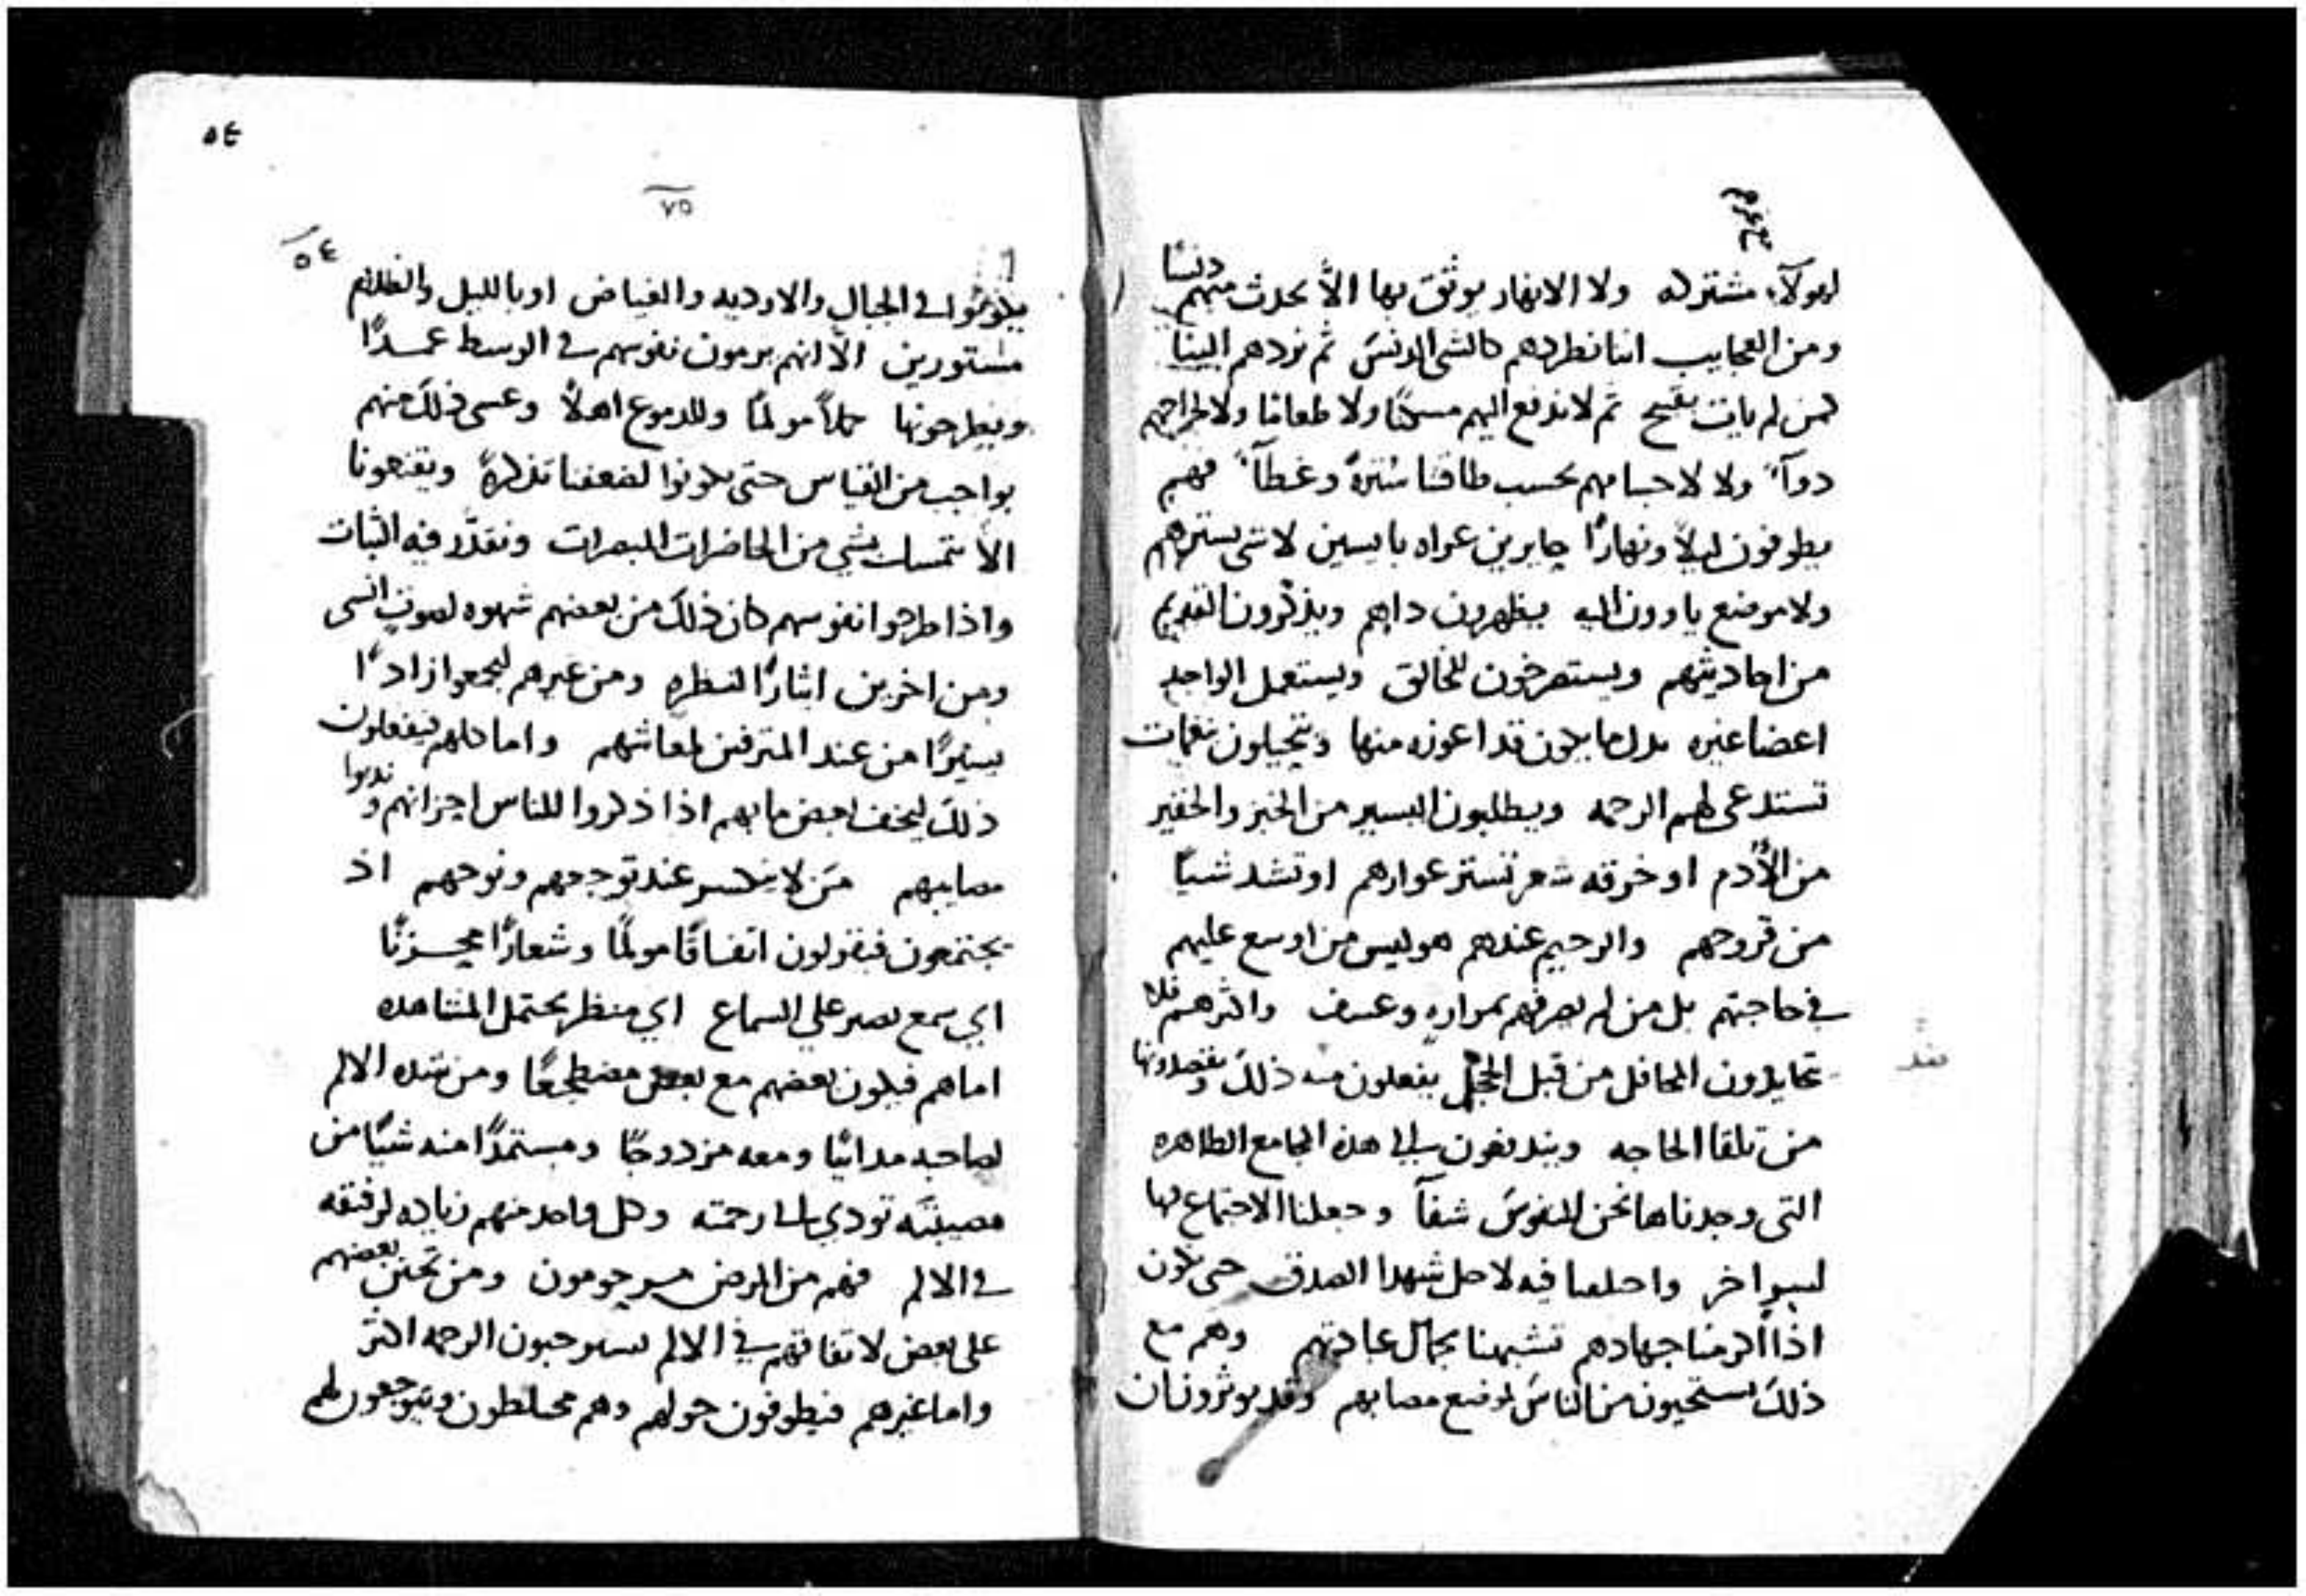 لهولآء مشتركه ولا الانهار يوثق بها الاّ يحدث منهم دنسًا
ومن العجايب اننا نطردهم كالشى الدنس ثم نردهم الينا
كمن لم يات بقبيح ثم لا ندفع اليهم مسكنًا ولا طعامًا ولا لجراحهم
دوآءً ولا لاجسامهم بحسب طاقتنا سُترةً وغطآءً فهم
يطوفون ليلاً ونهارًا حايرين عراه بايسين لا شى يسترهم
ولا موضع ياوون اليه يظهرون داهم ويذكرون القديم
من احاديثهم ويستصرخون للخالق ويستعمل الواحد
اعضا غيره بدل ما يكون قد اعوزه منها ويتحيلون نغمات
تستدعى لهم الرحمه ويطلبون اليسير من الخبز والحقير
من الأُدم او خرقه شعر تستر عوارهم او تشد شيًا
من قروحهم والرحيم عندهم هو ليس من اوسع عليهم
فى حاجتهم بل من لم يصرفهم بمراره وعسف واكثرهم فلا
يحايدون المحافل من قبل الخجل يفعلون ضد ذلك ويقصدونها
من تلقا الحاجه ويندفعون الى هذه المجامع الطاهره
التى وجدناها نحن للنفوس شفآ وجعلنا الاجتماع بها
لسر اخر واحلعا فيه لاجل شهدا الصدق حتى نكون
اذا اكرمنا جهادهم تشبهنا بجمال عبادتهم وهم مع
ذلك يستحيون من الناس لوضع مصابهم وقد يوثرون ان
٥٤
٧٥
٥٤
يكونوا فى الجبال والاوديه والغياض او بالليل والظلام
مستورين الاّ انهم يرمون نفوسهم فى الوسط عمدًا
ويطرحونها حملاً مولمًا وللدموع اهلاً وعسى ذلك منهم
بواجب من القياس حتى يكونوا لضعفنا تذكرةً ويقنعونا
الاّ نتمسك بشي من الحاضرات المبصرات ونقدّر فيه الثبات
واذا طرحوا نفوسهم كان ذلك من بعضهم شهوه لصوت انسى
ومن اخرين ايثارًا لنظره ومن غيرهم ليجمعوا زادًا
يسيرًا من عند المترفين لمعاشهم واما كلهم فيفعلون
ذلك ليخف بعض ما بهم اذا ذكروا للناس احزانهم وندبوا
مصايبهم من لا ينكسر عند توجعهم ونوحهم اذ
يجتمعون فيقولون اتفاقًا مولمًا وشعارًا محزنًا
اي سمع يصبر على السماع اي منظر يحتمل المشاهده
اما هم فيكون بعضهم مع بعض مضطجعًا ومن شده الالم
لصاحبه مدانيًا ومعه مزدوجًا ومستمدًا منه شيًا من
مصيبته تودي الى رحمته وكل واحد منهم زياده لرفيقه
فى الالم فهم من المرض مرحومون ومن تحنن بعضهم
على بعض لاتفاقهم فى الالم يستوجبون الرحمه اكثر
واما غيرهم فيطوفون حولهم وهم مختلطون ويتوجعون لهم